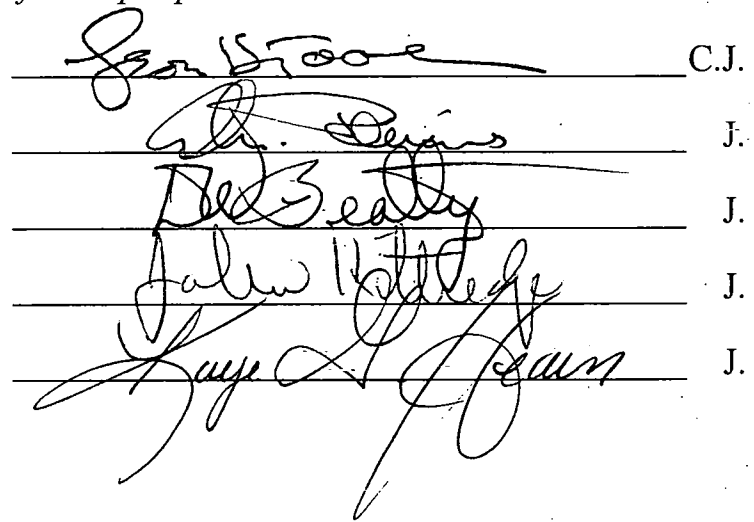 Jean H. Toal C.J.
J.
Beatty J.
John Kittredge J.
Kaye G. Hearn J.